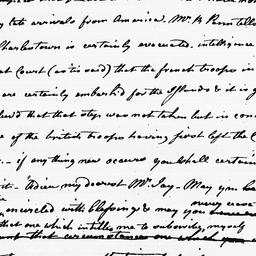 by late arrivals from America. Mr. H Penn tells
Charlestown is certainly evacuated. intelligence
at Court (as tis said) that the french troops in
are certainly embark'd for the Islands & it is g
liev'd that that step was not taken but in con
e of the british troops having first left the C
. - if any thing new occurs you shall certain
it - Adieu my dearest Mr. Jay - May you be
encircled with blessings & may you never cease
that one which intitles me to subscribe myself
that circumstance one which you